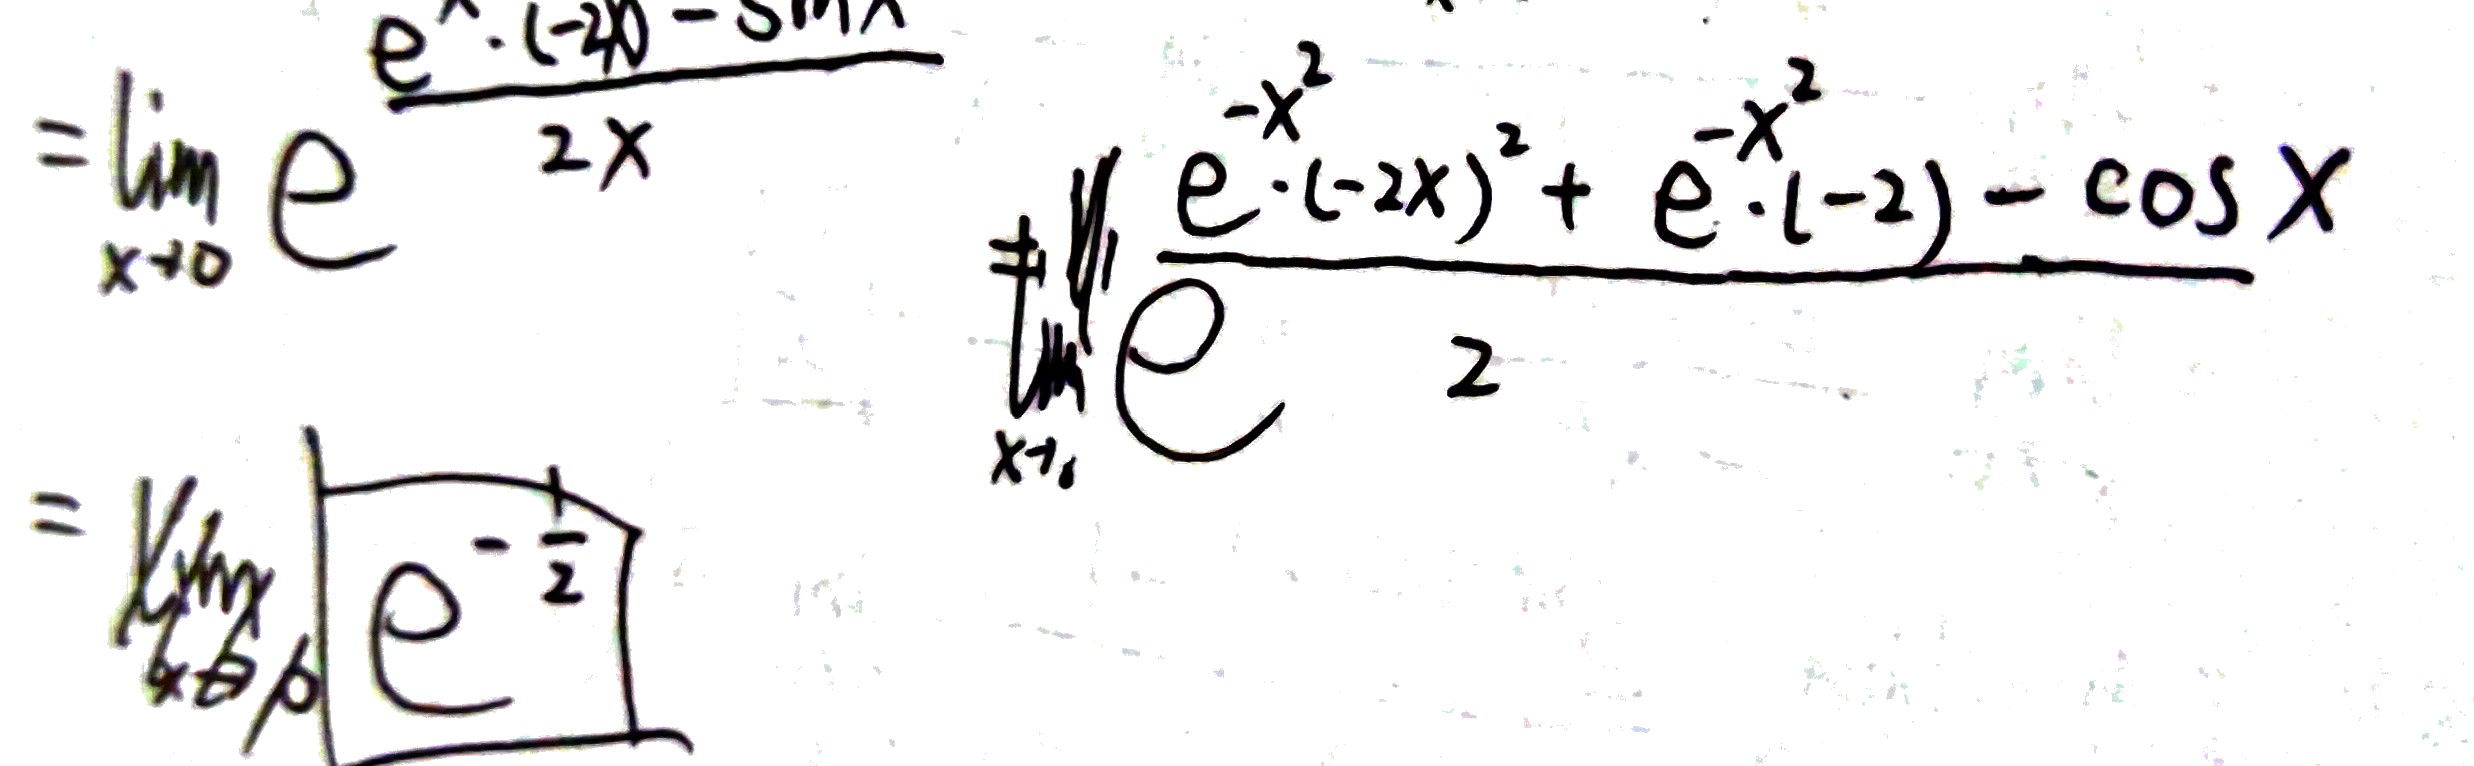 = lim x→0 e^((e^x · (-2x) - sin x) / (2x))
= lim x→0 e^((e^(-x^2) · (-2x)^2 + e^(-x^2) · (-2) - cos x) / 2)
= e^(-1/2)